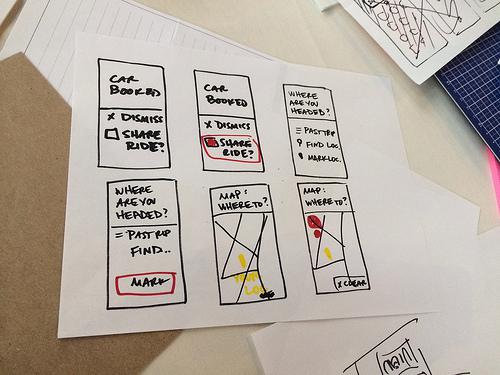 CAR
BOOKED
X DISMISS
SHARE
RIDE?
CAR
BOOKED
X DISMISS
SHARE
RIDE?
WHERE
ARE YOU
HEADED?
= PAST TRIP
FIND LOC.
MARK LOC.
WHERE
ARE YOU
HEADED?
= PAST TRIP
FIND..
MARK
MAP:
WHERE TO?
LOC
MAP:
WHERE TO?
X CLEAR